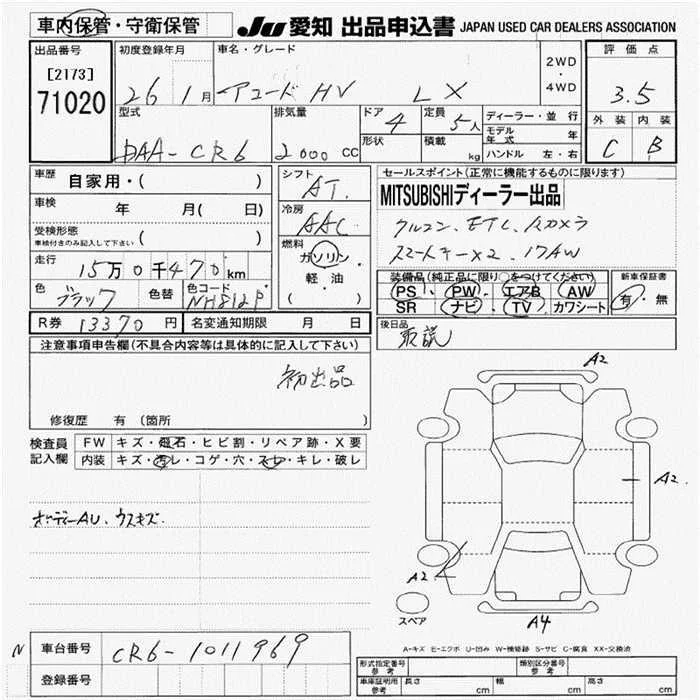 車内保管・守衛保管
JU 愛知 出品申込書 JAPAN USED CAR DEALERS ASSOCIATION
出品番号 初度登録年月 車名・グレード 2WD ・ 4WD 評価点
[2173]
71020
26 1月 アコード HV LX 3.5
外装 内装
C B
型式 排気量 ドア 4 定員 5人 ディーラー・並行
DAA-CR6 2000 CC 形状 積載 kg モデル年式 年
ハンドル 左・右
車歴 自家用・( ) シフト AT. セールスポイント(正常に機能するものに限ります)
MITSUBISHIディーラー出品
車検 年 月( 日) 冷房 AAC
クルコン、ETC、Bカメラ
受検形態 車検付きのみ記入して下さい ( ) 燃料 ガソリン
スマートキー×2、17AW
走行 15万0千470km 軽油
( )
装備品(純正品に限り○をつけてください) 新車保証書
色 ブラック 色替 色コード NH812P
PS ・ PW ・ エアB ・ AW 有・無
SR ナビ ・ TV ・ カワシート
R券 13370円 名変通知期限 月 日
後日品
取説
注意事項申告欄(不具合内容等は具体的に記入して下さい)
初出品
修復歴 有 (箇所 )
検査員記入欄 FW キズ・飛石・ヒビ割・リペア跡・X要
内装 キズ・汚レ・コゲ・穴・スレ・キレ・破レ
ボディーAU、ウスキズ.
A2
A2.
A2.
A4
スペア
A-キズ E-エクボ U-凹み W-補修跡 S-サビ C-腐食 XX-交換済
N 車台番号 CR6-1011969
登録番号
形式指定番号 参考 類別区分番号 参考
車庫証明用 参考 長さ cm 幅 cm 高さ cm